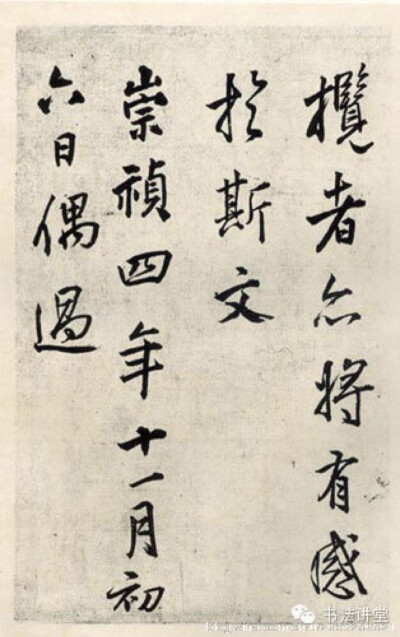 攬者亦將有感
於斯文
崇禎四年十一月初
六日偶過
书法讲堂